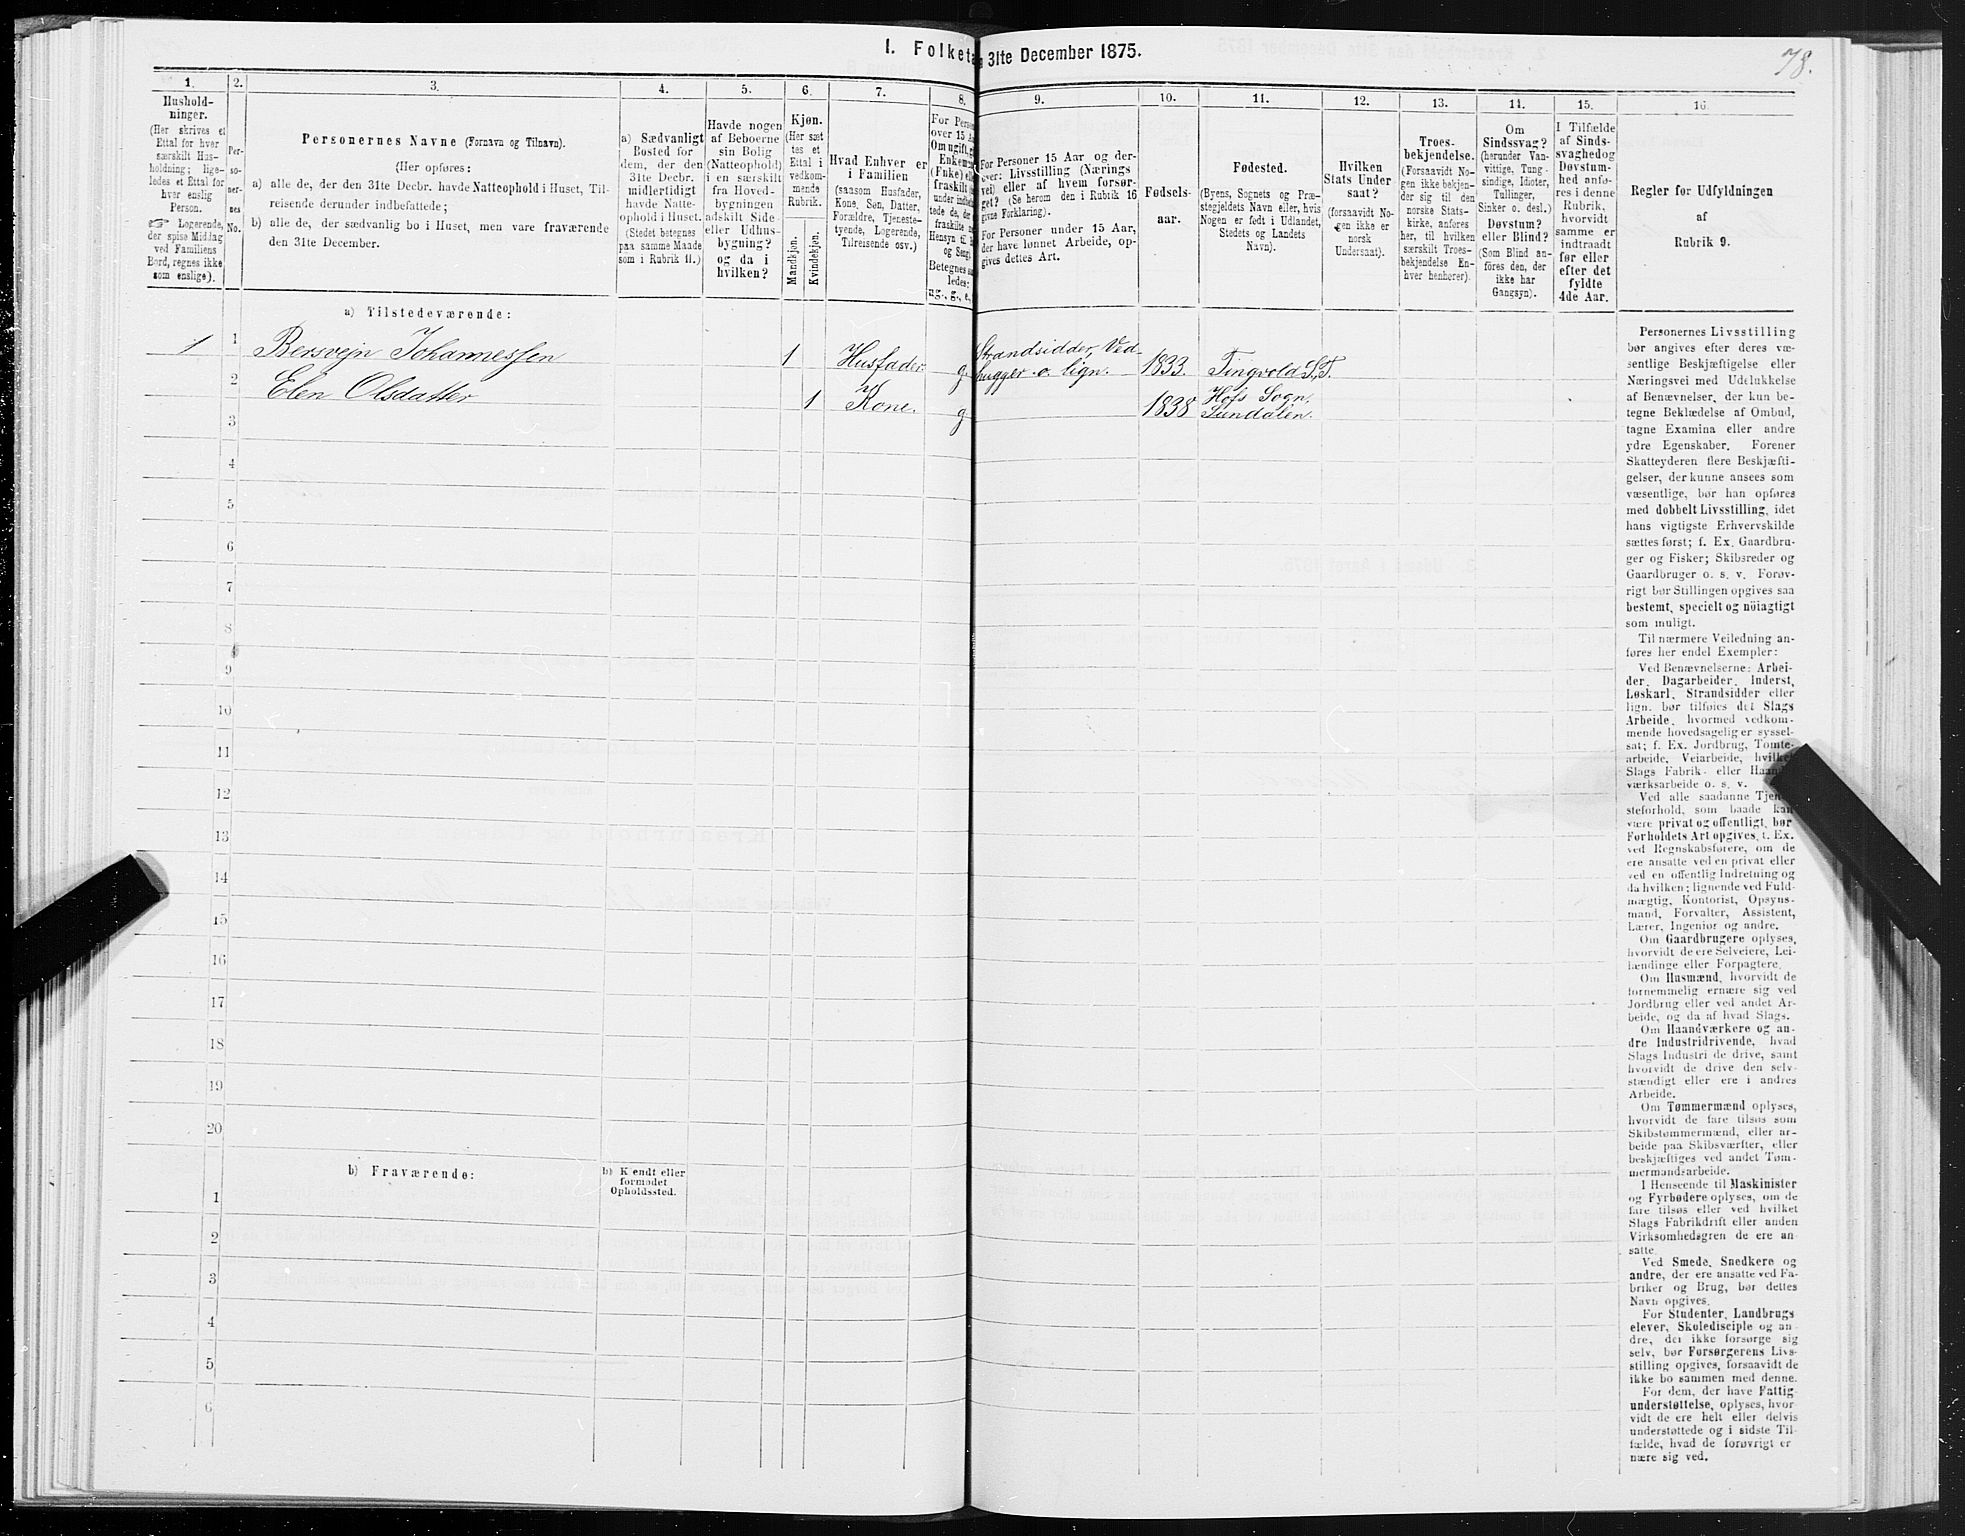 I. Folketæ
31te December 1875.
78.
1.
2.
3.
4.
5.
6.
7.
8.
9.
10.
11.
12.
13.
14.
15.
16
Hushold-
ninger.
(Her skrives et
Ettal for hver
særskilt Hus-
holdning; lige-
ledes et Ettal for
hver enslig
Person.
☞ Logerende,
der spise Middag
ved Familiens
Bord, regnes ikke
som enslige).
Per-
so-
ner-
nes
No.
Personernes Navne (Fornavn og Tilnavn).
(Her opføres:
a) alle de, der den 31te Decbr. havde Natteophold i Huset, Til-
reisende derunder indbefattede;
b) alle de, der sædvanlig bo i Huset, men vare fraværende
den 31te December.
a) Sædvanligt
Bosted for
dem, der den
31te Decbr.
midlertidigt
havde Natte-
ophold i Huset.
(Stedet betegnes
paa samme Maade
som i Rubrik 11.)
Havde nogen
af Beboerne
sin Bolig
(Natteophold)
i en særskilt
fra Hoved-
bygningen
adskilt Side-
eller Udhus-
bygning?
og da i
hvilken?
Kjøn.
(Her sæt
tes et
Ettal i
vedkom-
mende
Rubrik.
Mandkjøn.
Kvindekjøn.
Hvad Enhver er
i Familien
(saasom Husfader,
Kone, Søn, Datter,
Forældre, Tjeneste-
tyende, Logerende,
Tilreisende osv.)
For Person
over 15 Aa
Om ugift, g
Enkeman
(Enke) ell
fraskilt
under indbe
tede de, der
fraskilte
Hensyn til B
og Seng.
Betegnes saa
ledes:
ug., g., e.,
For Personer 15 Aar og der-
over: Livsstilling (Nærings
vei) eller af hvem forsør-
get? (Se herom den i Rubrik 16
givne Forklaring).
For Personer under 15 Aar,
der have lønnet Arbeide, op-
gives dettes Art.
Fødsels-
aar.
Fødested.
(Byens, Sognets og Præ-
stegjeldets Navn eller, hvis
Nogen er født i Udlandet,
Stedets og Landets
Navn).
Hvilken
Stats Under
saat?
(forsaavidt No-
gen ikke er
norsk
Undersaat).
Troes-
bekjendelse.
(Forsaavidt No-
gen ikke bekjen-
der sig til den
norske Stats-
kirke, anføres
her, til hvilken
særskilt Troes-
bekjendelse En-
hver henhører).
Om
Sindssvag?
(herunder Van-
vittige, Tung-
sindige, Idioter,
Tullinger,
Sinker o. desl.)
Døvstum?
eller Blind?
(Som Blind an-
føres den, der
ikke har
Gangsyn).
I Tilfælde
af Sinds-
svaghed og
Døvstum-
hed anfø-
res i denne
Rubrik,
hvorvidt
samme er
indtraadt
før eller
efter det
fyldte
4de Aar.
Regler før Udfyldningen
af
Rubrik 9.
a) Tilstedeværende:
1 1 Bersvejn Johannessen 1 Husfader. g. Strandsidder, Ved-
hugger o. lign. 1833. Tingvold S, T.
2 Elen Olsdatter 1 Kone. g. 1838 Hofs Sogn,
Sundalen.
3
4
5
6
7
8
9
10
11
12
13
14
15
16
17
18
19
20
b) Fraværende:
b) Kjendt eller
formodet
Opholdssted.
1
2
3
4
5
6
Personernes Livsstilling
bør angives efter deres væ-
sentlige Beskjæftigelse eller
Næringsvei med Udelukkelse
af Benævnelser, der kun be-
tegne Beklædelse af Ombud,
tagne Examina eller andre
ydre Egenskaber. Forener
Skatteyderen flere Beskjæfti-
gelser, der kunne ansees som
væsentlige, bør han opføres
med dobbelt Livsstilling, idet
hans vigtigste Erhvervskilde
sættes først; f. Ex. Gaardbru-
ger og Fisker; Skibsreder og
Gaardbruger o. s. v. Forøv-
rigt bør Stillingen opgives saa
bestemt, specielt og nöiagtigt
som muligt.
Til nærmere Veiledning an-
føres her endel Exempler:
Ved Benævnelserne: Arbei-
der, Dagarbeider, Inderst,
Løskarl, Strandsidder eller
lign. bør tilføies det Slags
Arbeide, hvormed vedkom-
mende hovedsagelig er syssel-
sat; f. Ex. Jordbrug, Tomte-
arbeide, Veiarbeide, hvilket
Slags Fabrik- eller Haand-
værksarbeide o. s. v.
Ved alle saadanne Tjene-
steforhold, som baade kan
være privat og offentligt, bør
Forholdets Art opgives, t. Ex.
ved Regnskabsførere, om de
ere ansatte ved en privat eller
ved en offentlig Indretning og
da hvilken; lignende ved Fuld-
mægtig, Kontorist, Opsyns-
mand, Forvalter, Assistent,
Lærer, Ingeniør og andre.
Om Gaardbrugere oplyses,
hvorvidt de ere Selveiere, Lei-
lændinge eller Forpagtere.
Om Husmænd, hvorvidt de
fornemmelig ernære sig ved
Jordbrug eller ved andet Ar-
beide, og da af hvad Slags.
Om Haandværkere og an-
dre Industridrivende, hvad
Slags Industri de drive, samt
hvorvidt de drive den selv-
stændigt eller ere i andres
Arbeide.
Om Tømmermænd oplyses,
hvorvidt de fare tilsøs som
Skibstømmermænd, eller ar-
beide paa Skibsværfter, eller
beskjæftiges ved andet Tøm-
mermandsarbeide.
I Henseende til Maskinister
og Fyrbødere oplyses, om de
fare tilsøs eller ved hvilket
Slags Fabrikdrift eller anden
Virksomhedsgren de ere an-
satte.
Ved Smede, Snedkere og
andre, der ere ansatte ved Fa-
briker og Brug, bør dettes
Navn opgives.
For Studenter, Landbrugs
elever, Skoledisciple og an-
dre, der ikke forsørge sig
selv, bør Forsørgerens Livs-
stilling opgives, forsaavidt de
ikke bo sammen med denne.
For dem, der have Fattig-
understøttelse, oplyses, hvor-
vidt de ere helt eller delvis
understøttede og i sidste Til-
fælde, hvad de forøvrigt er
nære sig ved.